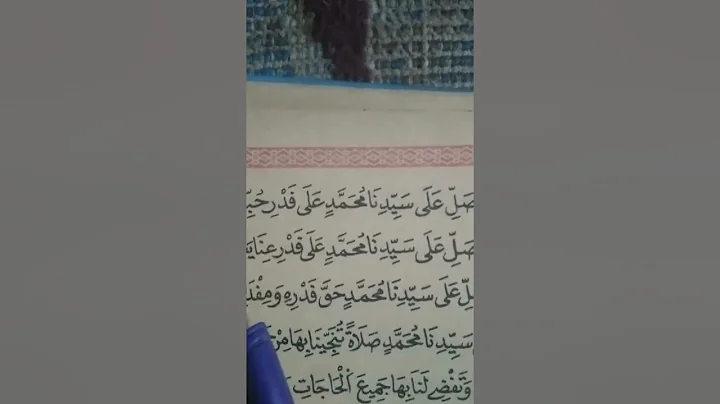 صَلِّ عَلَى سَيِّدِنَا مُحَمَّدٍ عَلَى قَدْرِ
صَلِّ عَلَى سَيِّدِنَا مُحَمَّدٍ عَلَى قَدْرِ
عَلَى سَيِّدِنَا مُحَمَّدٍ حَقَّ قَدْرِهِ
سَيِّدِنَا مُحَمَّدٍ صَلَاةً تُنَجِّينَا بِهَا مِنْ
وَتَقْضِي لَنَا بِهَا جَمِيعَ الْحَاجَاتِ